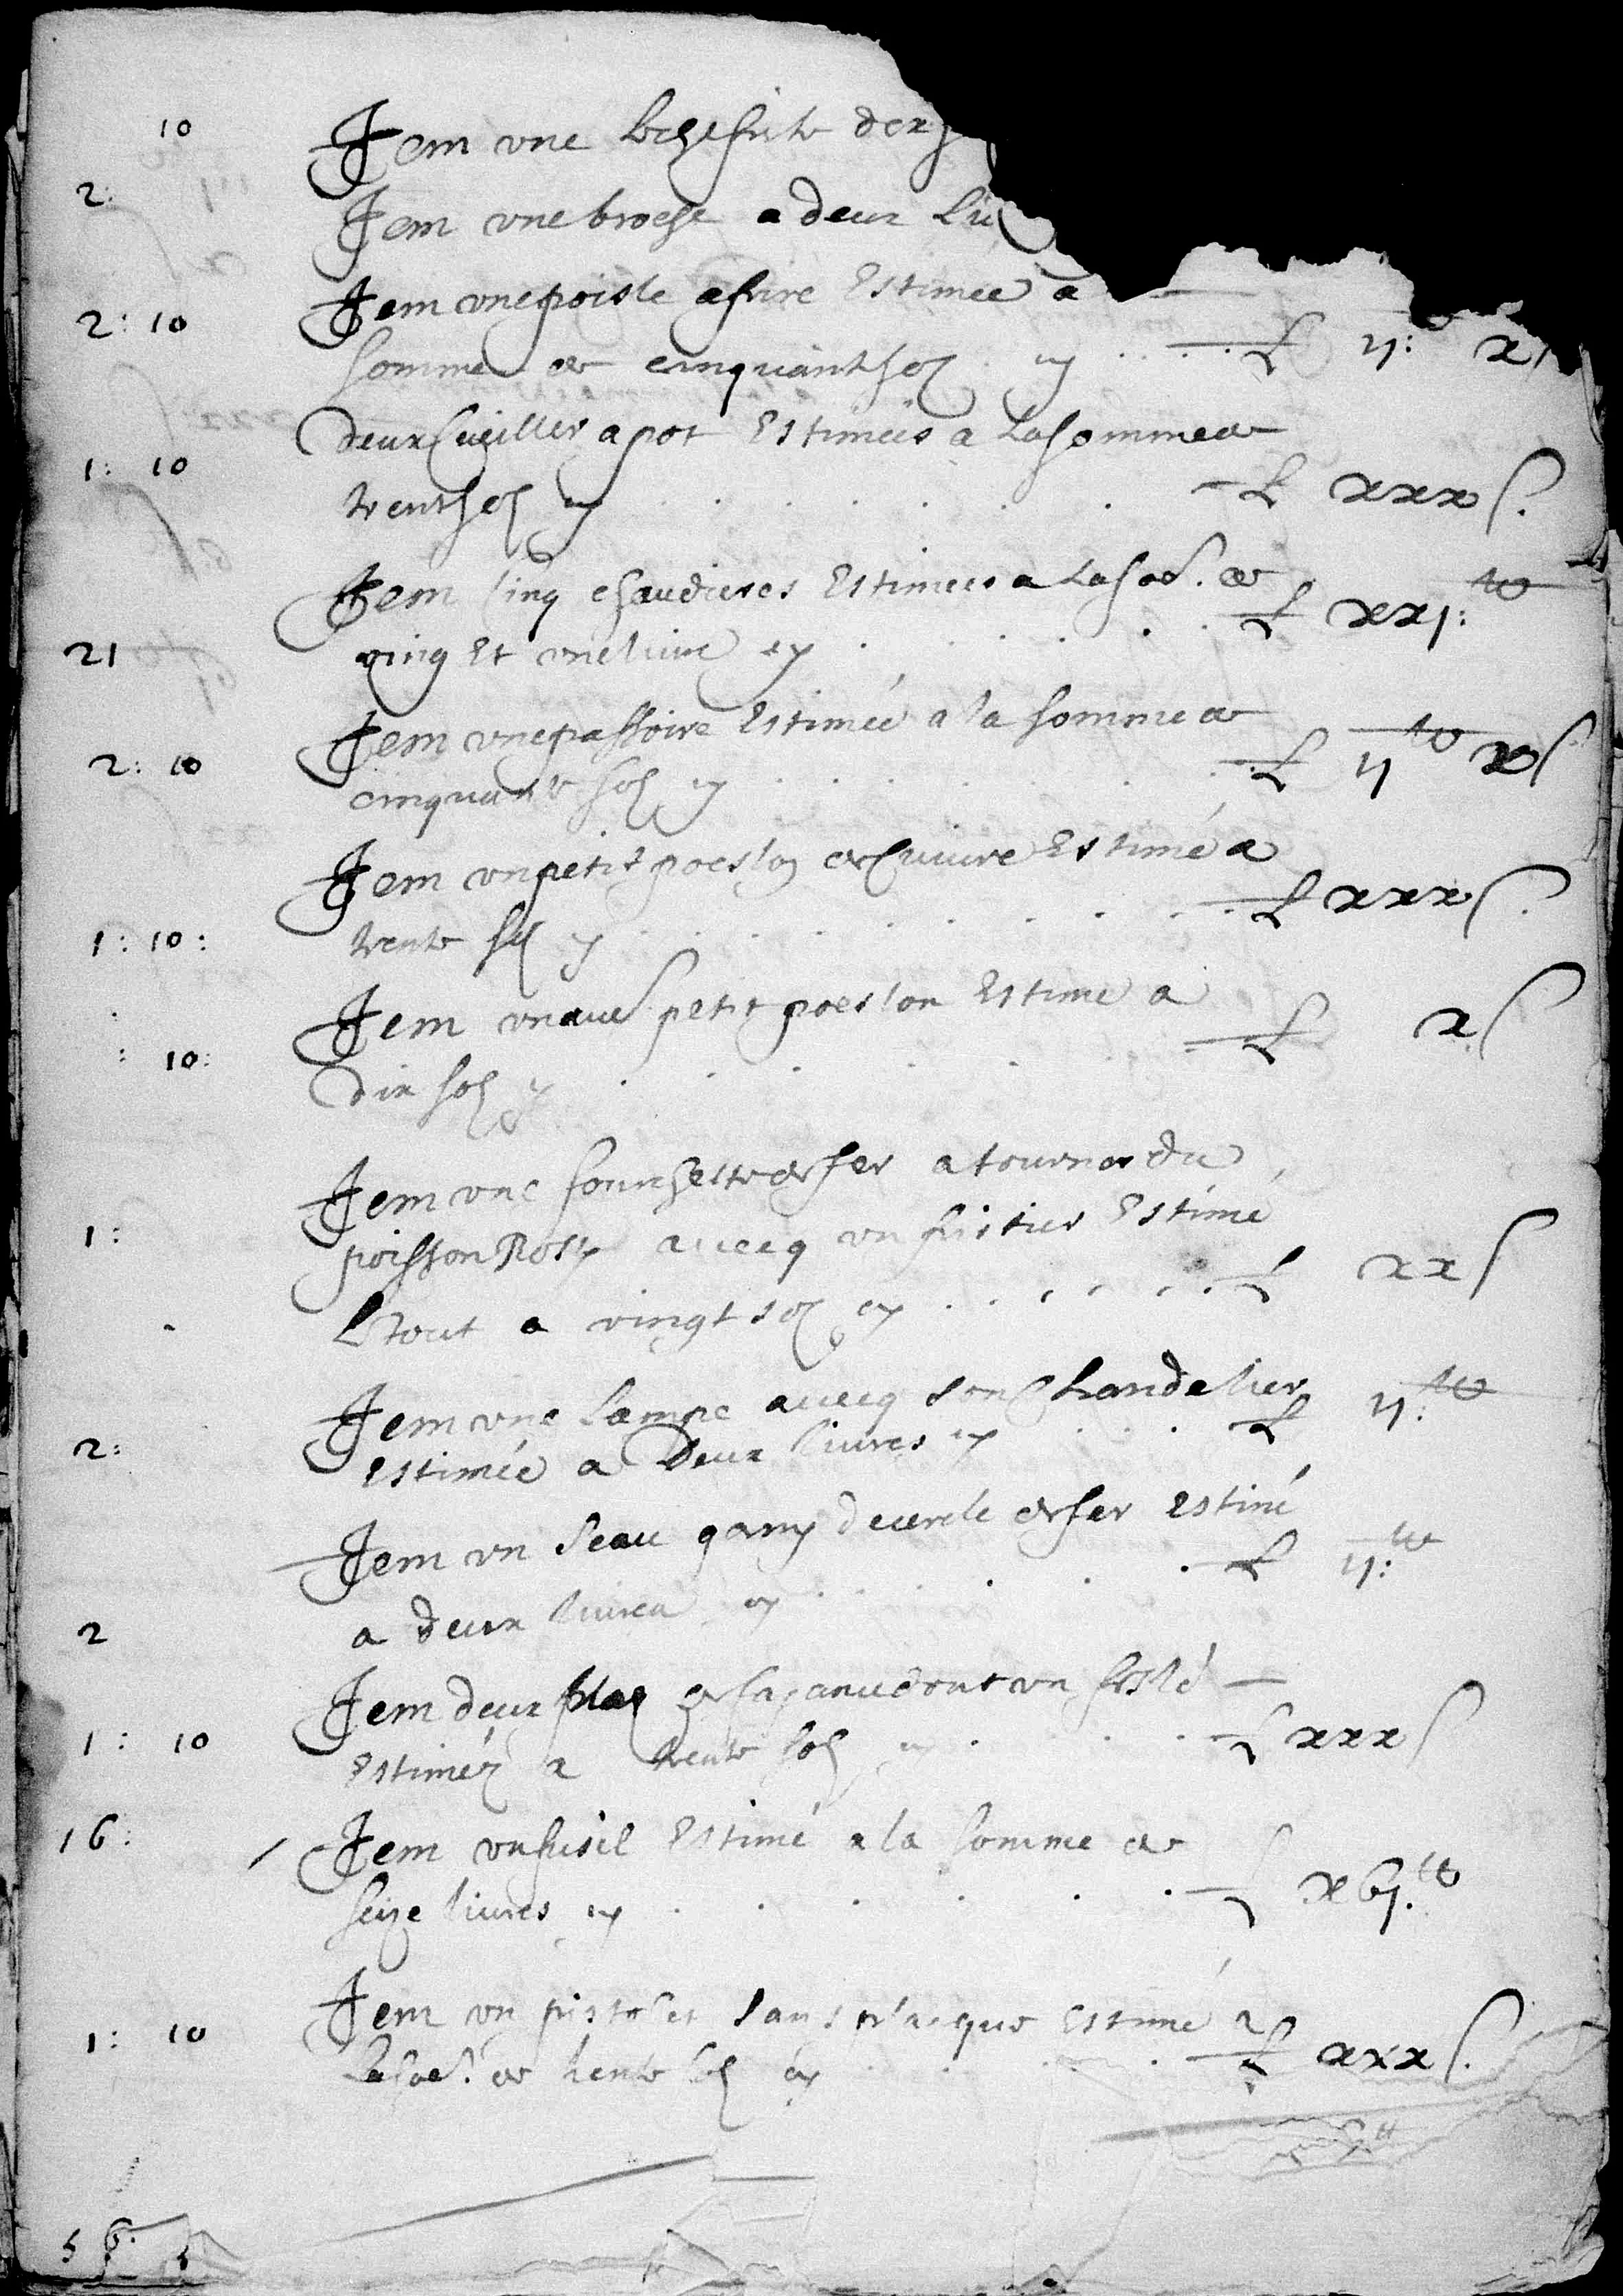 10 Item une lechefrite dix s
2: Item une broche a deux liv
Item une poisle a frire Estimée a
2: 10 somme de cinquante sols cy . . . . L ij: lt x s
deux Cueilles a pot Estimées a La somme de
1: 10 trente sols cy . . . . . . L xxx s.
Item Cinq chaudieres Estimees a La so.e de
21 ving Et une livre cy . . . . . L xxj: lt
Item une passoire Estimée a la somme de
2: 10 cinquante sols cy . . . . . . L ij lt x s
Item un petit poeslon de Cuivre Estimé a
1: 10: trente sols cy . . . . . . . L xxx s.
Item un autre petit poeslon Estimé a
: 10: dix sols cy . . . . . . L x s
Item une fourchette de fer a tourner du
1: poisson Rosty avecq un Estimé
Le tout a vingt sols cy . . . . . . L xx s
Item une Lampe avecq son Chandelier
2: Estimée a Deux livres cy . . . L ij: lt
Item un seau garny de cercle de fer Estimé
2 a deux livres cy . . . . . L ij: lt
Item deux plas de fayance dont un feslé
1: 10 Estiméz a trente sols cy . . . . L xxx s
16: Item un fusil Estimé a la somme de
seize livres cy . . . . . L xvj. lt
Item un pistolet sans plaque Estimé a
1: 10 La so.e de trente sols cy . . . L xxx s.
56: